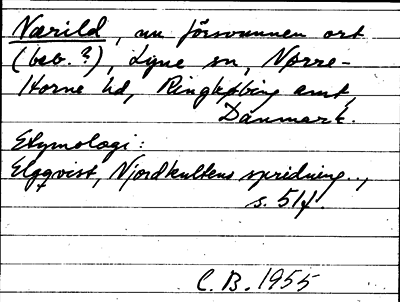 Nærild, nu försvunnen ort
(beb.?), Lyne sn, Nørre-
Horne hd, Ringkøbing amt,
Danmark.
Etymologi:
Elgqvist, Njordkultens spridning..,
s. 51f.
C.B. 1955